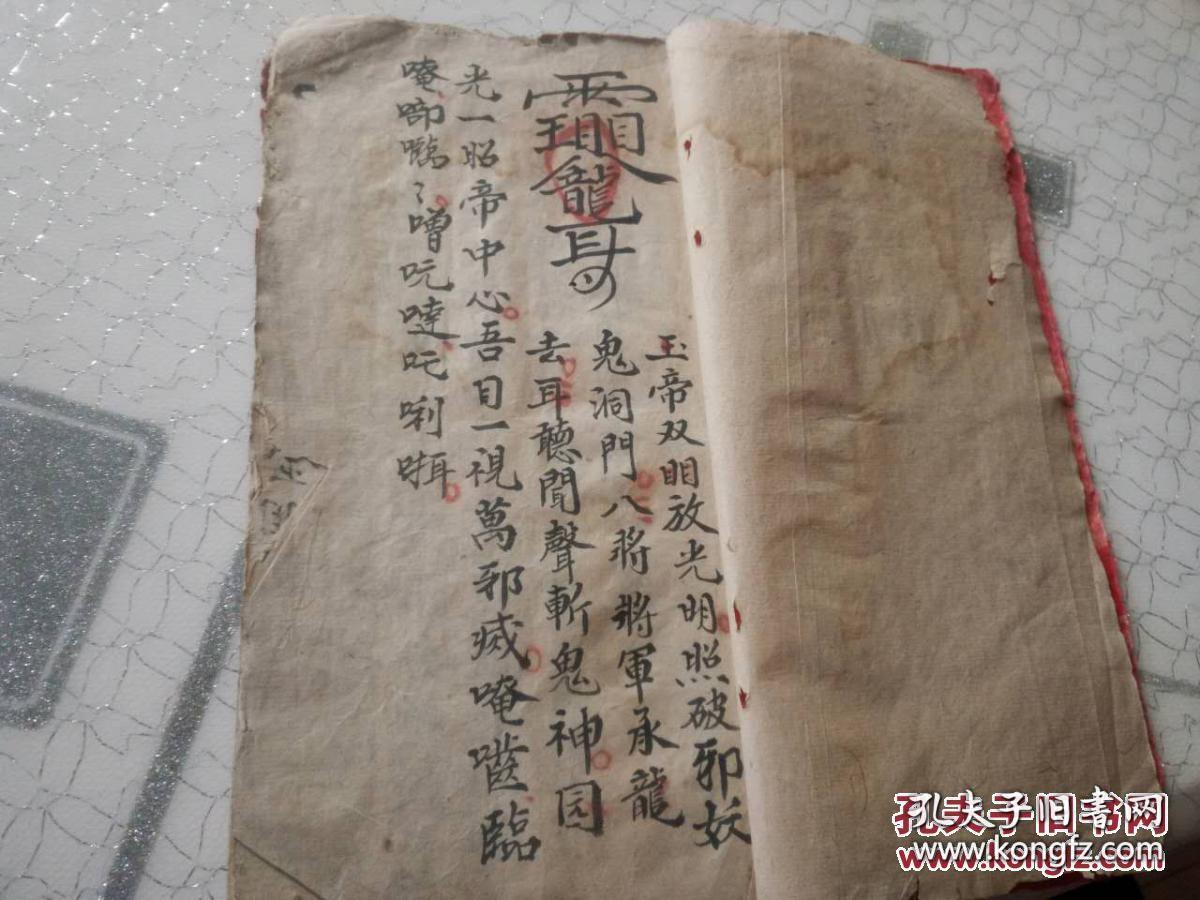 玉帝双眀放光明照破邪妖
鬼洞門八将将軍承龍
去耳聽聞聲斬鬼神园
光一昭帝中心吾目一視萬邪烕唵臨
唵啷噜吭噠吒唎𠹌
孔夫子旧书网
www.kongfz.com